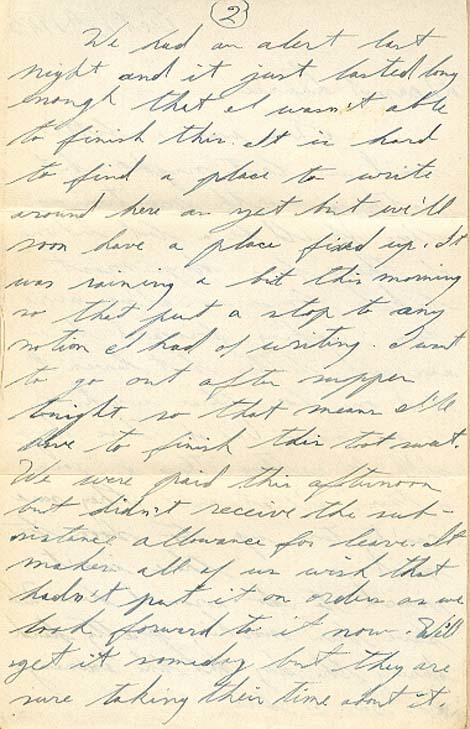 2
We had an alert last
night and it just lasted long
enough that I wasn't able
to finish this. It is hard
to find a place to write
around here as yet but we'll
soon have a place fixed up. It
was raining a bit this morning
so that put a stop to any
notion I had of writing. I want
to go out after supper
tonight so that means I'll
have to finish this toot sweet.
We were paid this afternoon
but didn't receive the sub-
sistance allowance for leave. It
makes all of us wish that
hadn't put it on orders as we
look forward to it now. We'll
get it someday but they are
sure taking their time about it.